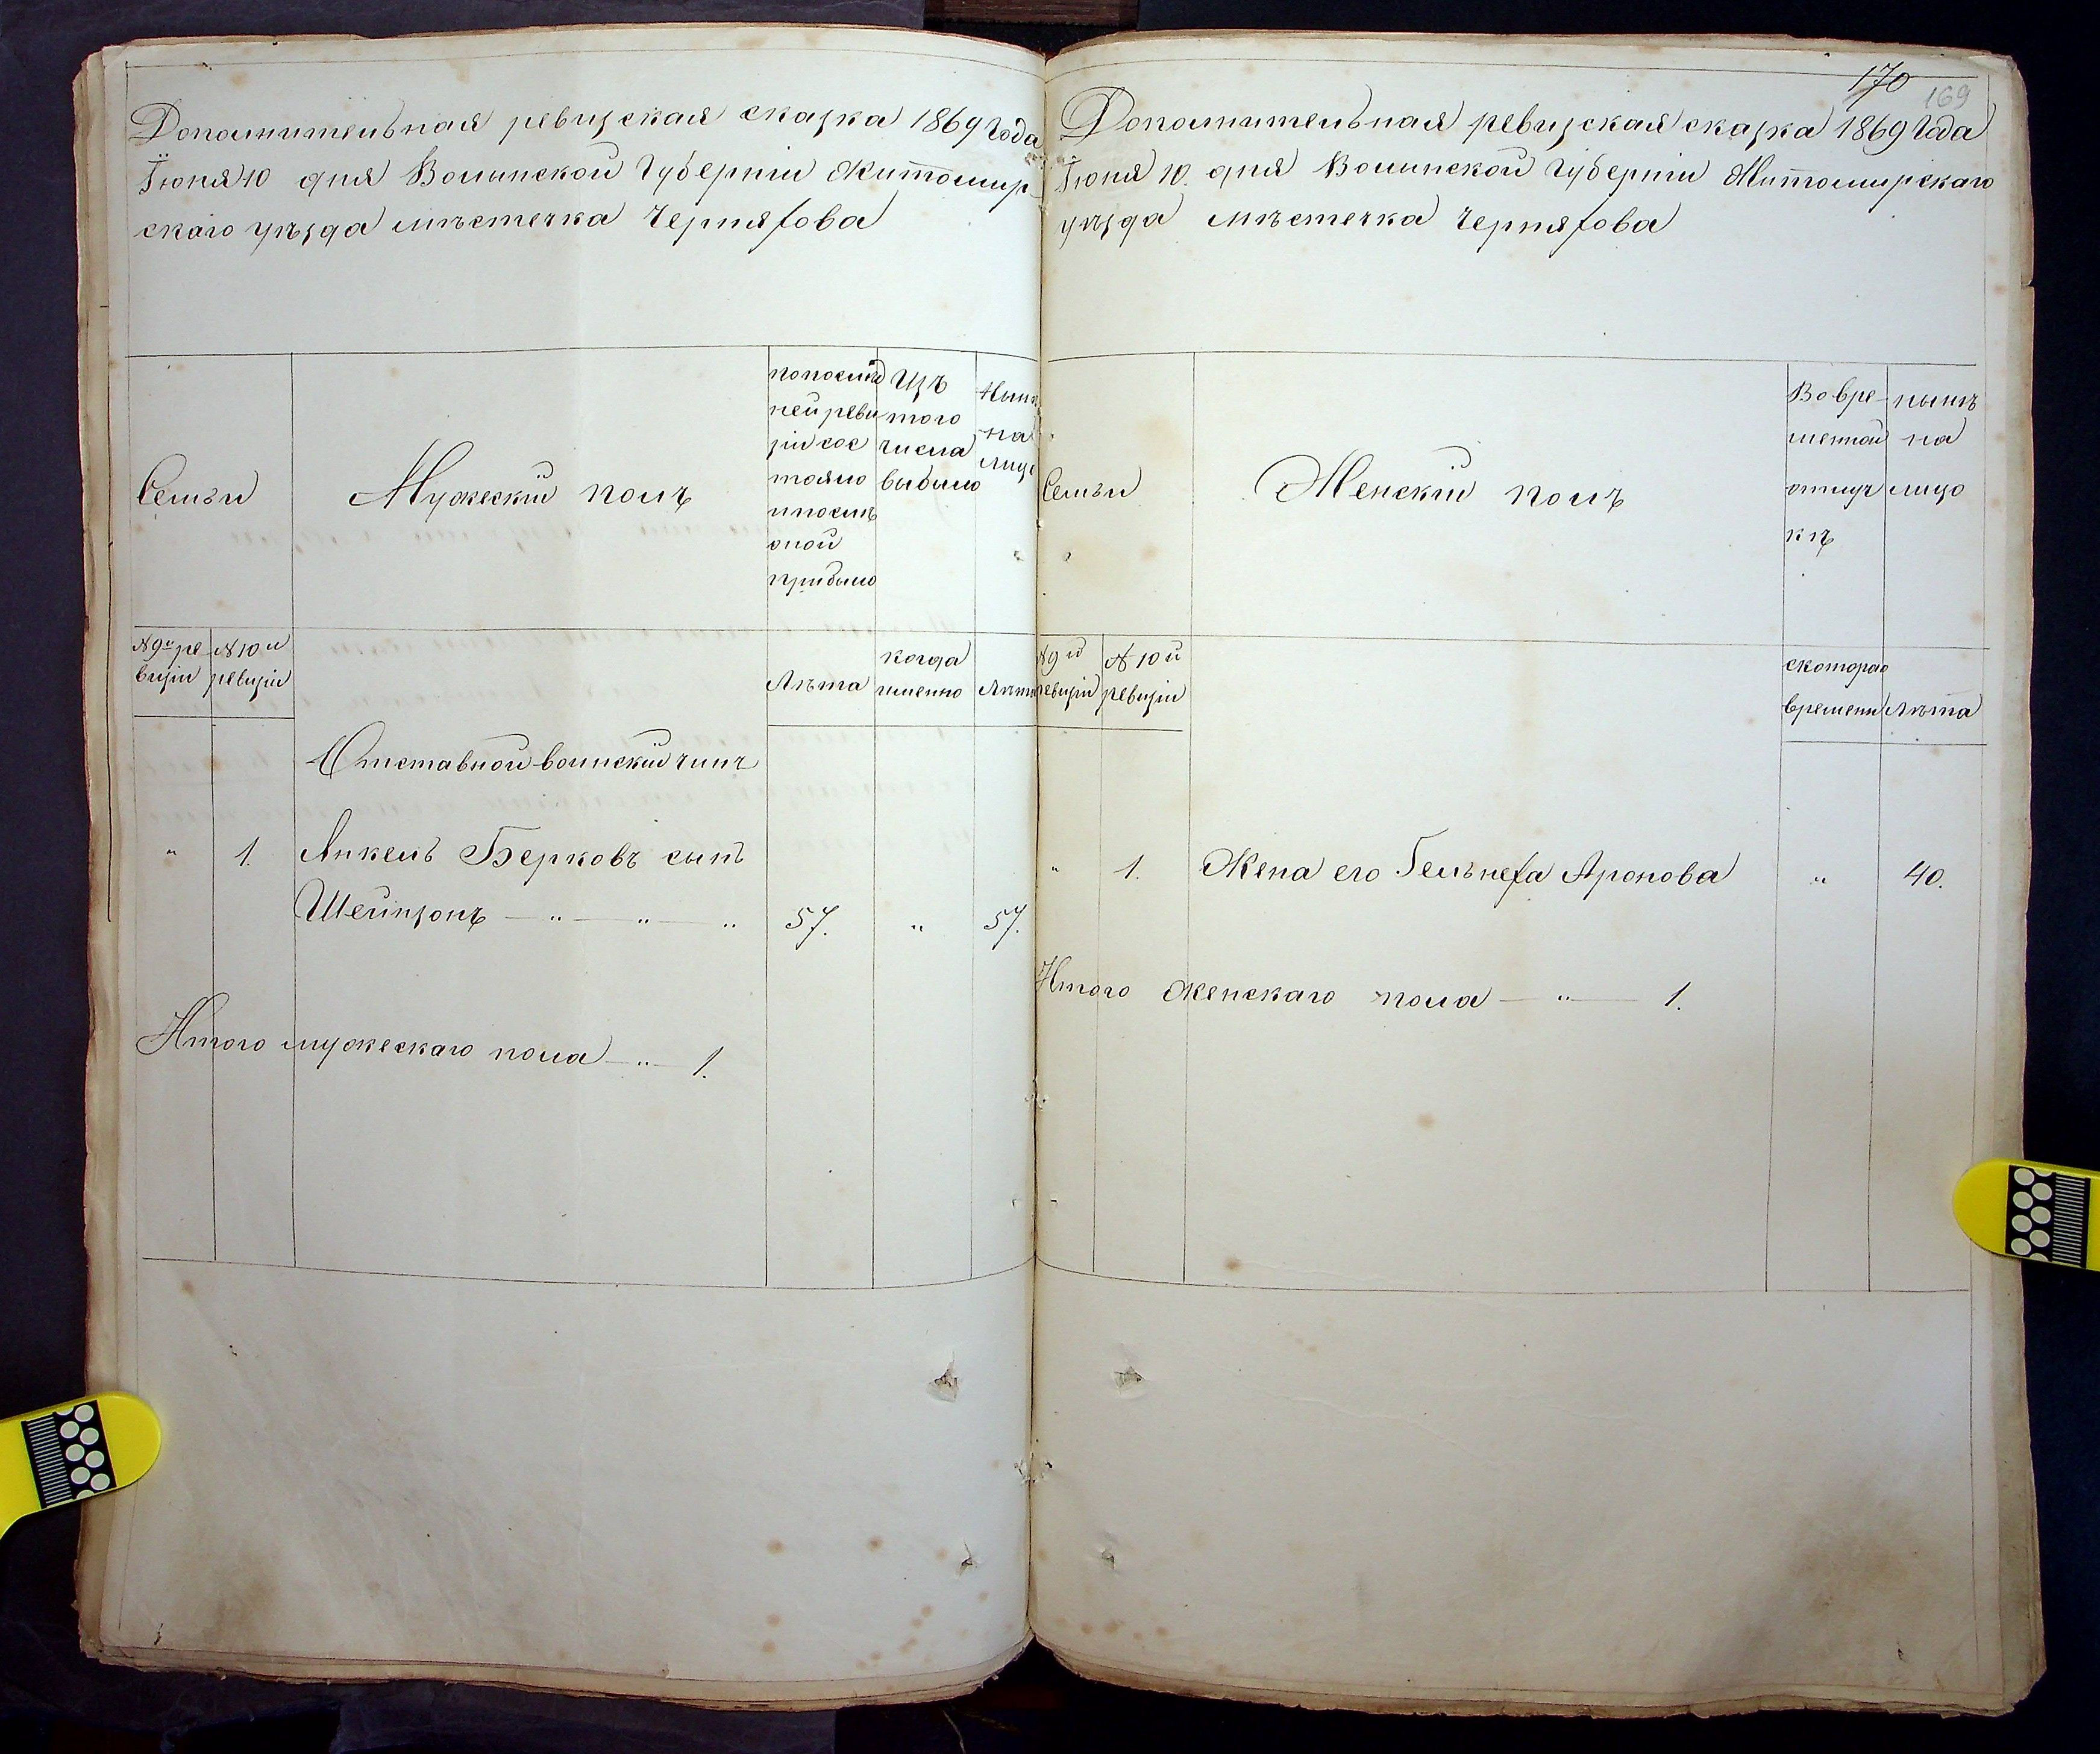 Дополнительная ревизская сказка 1869 года
Іюня 10 дня Волынской Губерніи Житомир
скаго уѣзда мѣстечка Черняхова
Семьи
Мужескій полъ
по послѣд
ней реви
зіи сос
тояло
и послѣ
оной
прибыло
Изъ
того
числа
выбыло
Нынѣ
на
лице
№ 9й ре
визіи
№ 10й
ревизіи
Лѣта
когда
именно
Лѣта
Отставной воинскій чинъ
„ 1. Янкель Берковъ сынъ
Шейнзонъ — „ — „ — „ 57. „ 57.
Итого мужескаго пола — „ — 1.
170
169
Дополнительная ревизская сказка 1869 года
Іюня 10. дня Волынской Губерніи Житомирскаго
уѣзда мѣстечка Черняхова
Семьи
Женскій полъ
Во вре
менной
отлуч
кѣ
нынѣ
на
лицо
№ 9й
ревизіи
№ 10й
ревизіи
с котораго
времени
Лѣта
„ 1. Жена его Гельнеха Аронова „ 40.
Итого женскаго пола — „ — 1.